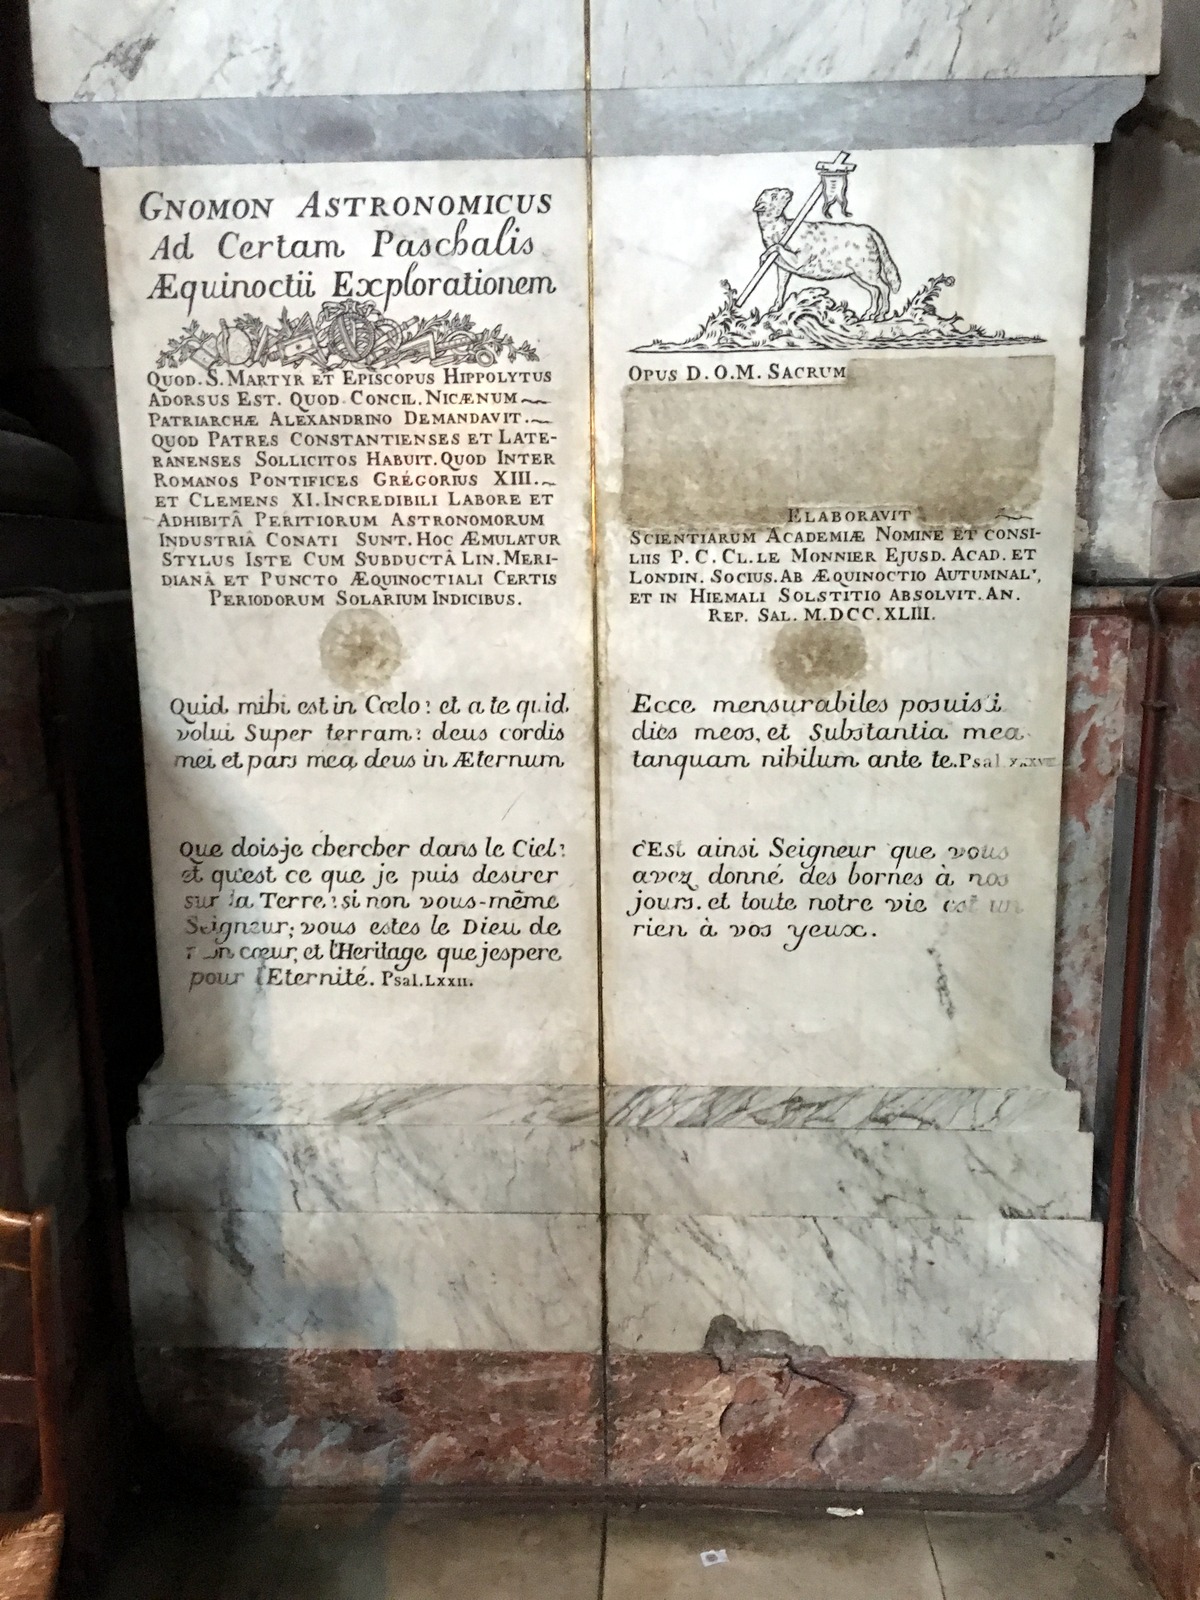 GNOMON ASTRONOMICUS
Ad Certam Paschalis
Æquinoctii Explorationem
QUOD. S. MARTYR ET EPISCOPUS HIPPOLYTUS
ADORSUS EST. QUOD CONCIL. NICÆNUM
PATRIARCHÆ ALEXANDRINO DEMANDAVIT.
QUOD PATRES CONSTANTIENSES ET LATE-
RANENSES SOLLICITOS HABUIT. QUOD INTER
ROMANOS PONTIFICES GRÉGORIUS XIII.
ET CLEMENS XI. INCREDIBILI LABORE ET
ADHIBITÂ PERITIORUM ASTRONOMORUM
INDUSTRIÂ CONATI SUNT. HOC ÆMULATUR
STYLUS ISTE CUM SUBDUCTÂ LIN. MERI-
DIANÂ ET PUNCTO ÆQUINOCTIALI CERTIS
PERIODORUM SOLARIUM INDICIBUS.
Quid mihi est in Cœlo? et a te quid
volui Super terram? deus cordis
mei et pars mea deus in Æternum
Que dois-je chercher dans le Ciel?
et qu'est ce que je puis desirer
sur la Terre? si non vous-même
Seigneur; vous estes le Dieu de
cœur, et l'Heritage que jespere
pour l'Eternité. Psal. LXXII.
OPUS D.O.M. SACRUM
ELABORAVIT
SCIENTIARUM ACADEMIÆ NOMINE ET CONSI-
LIIS P. C. CL. LE MONNIER EJUSD. ACAD. ET
LONDIN. SOCIUS. AB ÆQUINOCTIO AUTUMNAL',
ET IN HIEMALI SOLSTITIO ABSOLVIT. AN.
REP. SAL. M.DCC.XLIII.
Ecce mensurabiles posuisti
dies meos, et Substantia mea
tanquam nihilum ante te. Psal.
c'Est ainsi Seigneur que vous
avez donné des bornes à nos
jours. et toute notre vie est un
rien à vos yeux.